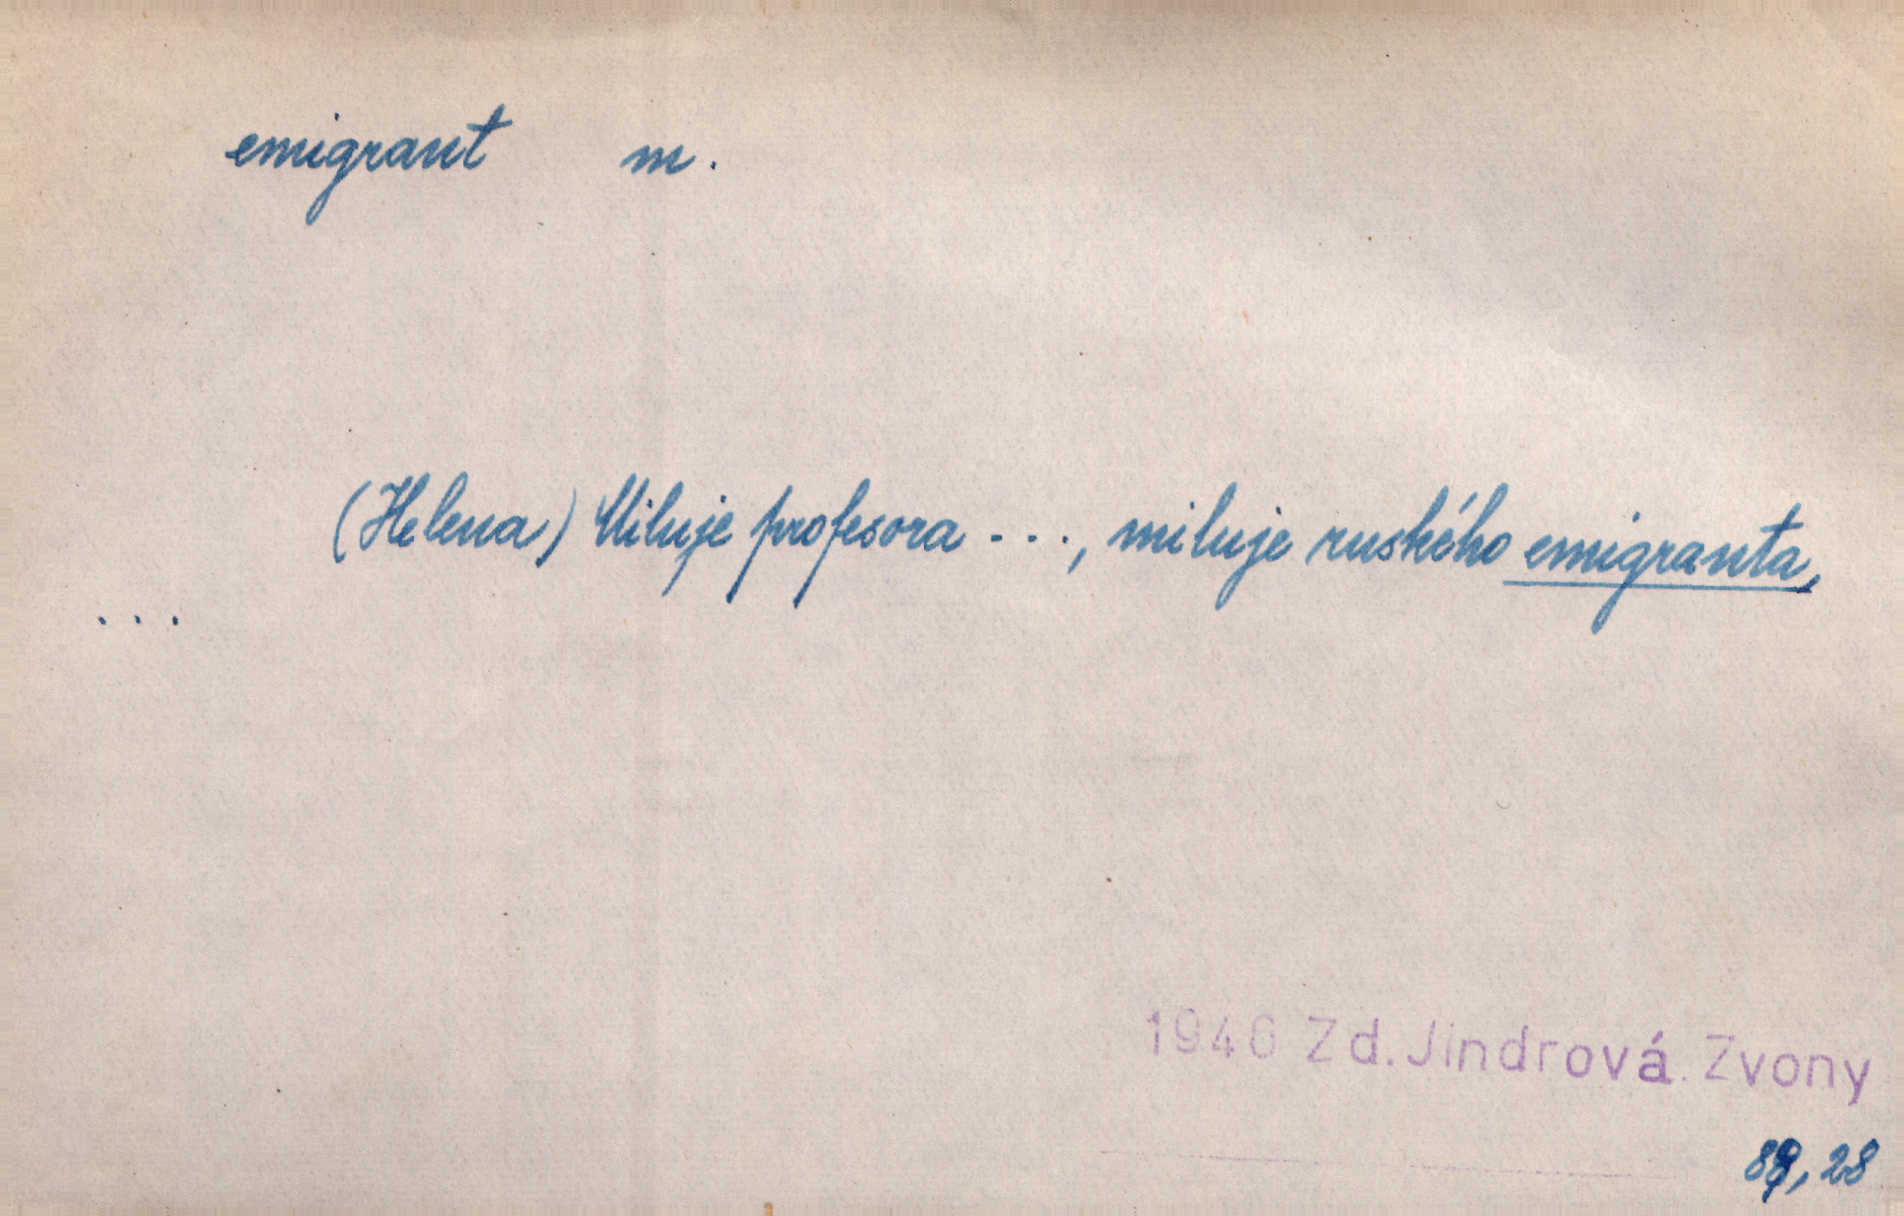 emigrant m.
(Helena) Miluje profesora ..., miluje ruského emigranta,
...
1940 Zd. Jindrová. Zvony
89, 28